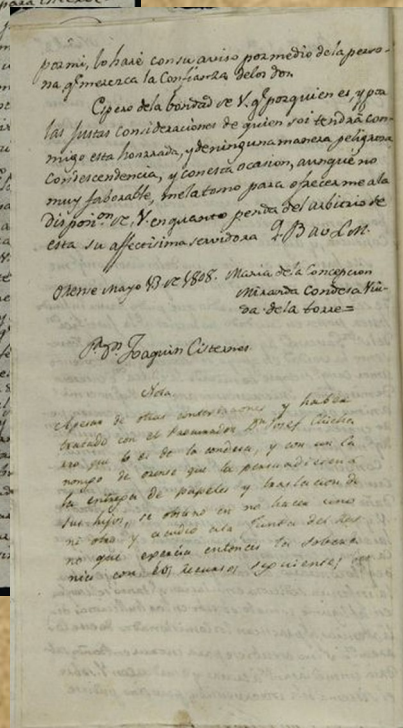 por mi, lo haré con su aviso por medio de la perso-
na q.e merezca la Confianza de los dos.
Espero de la bondad de V. q.e por quien es, y por
las justas consideraciones de quien soi tendrá con-
migo esta honrrada, y de ninguna manera peligrosa
condescendencia, y con esta ocasion, aunque no
muy faborable, me la tomo para ofrecerme a la
disposi.on de V. en quanto penda del arbitrio de
esta su affectisima servidora Q. B. a V. L. M.
Orense Mayo 13 de 1808. Maria de la Concepcion
Miranda Condesa Viu-
da de la torre=
S.r D.n Joaquin Cisternes
Nota
Apesar de otras contextaciones y haber
tratado con el Procurador D.n Josef
que lo es de la condesa, y con un
de orense que la persuadiesen a
la entrega de papeles y traslacion de
sus hijos, se obstinó en no hacer uno
ni otro y acudió a la Junta del Rey
no que exercia entonces la sobera
nia con los recursos siguientes